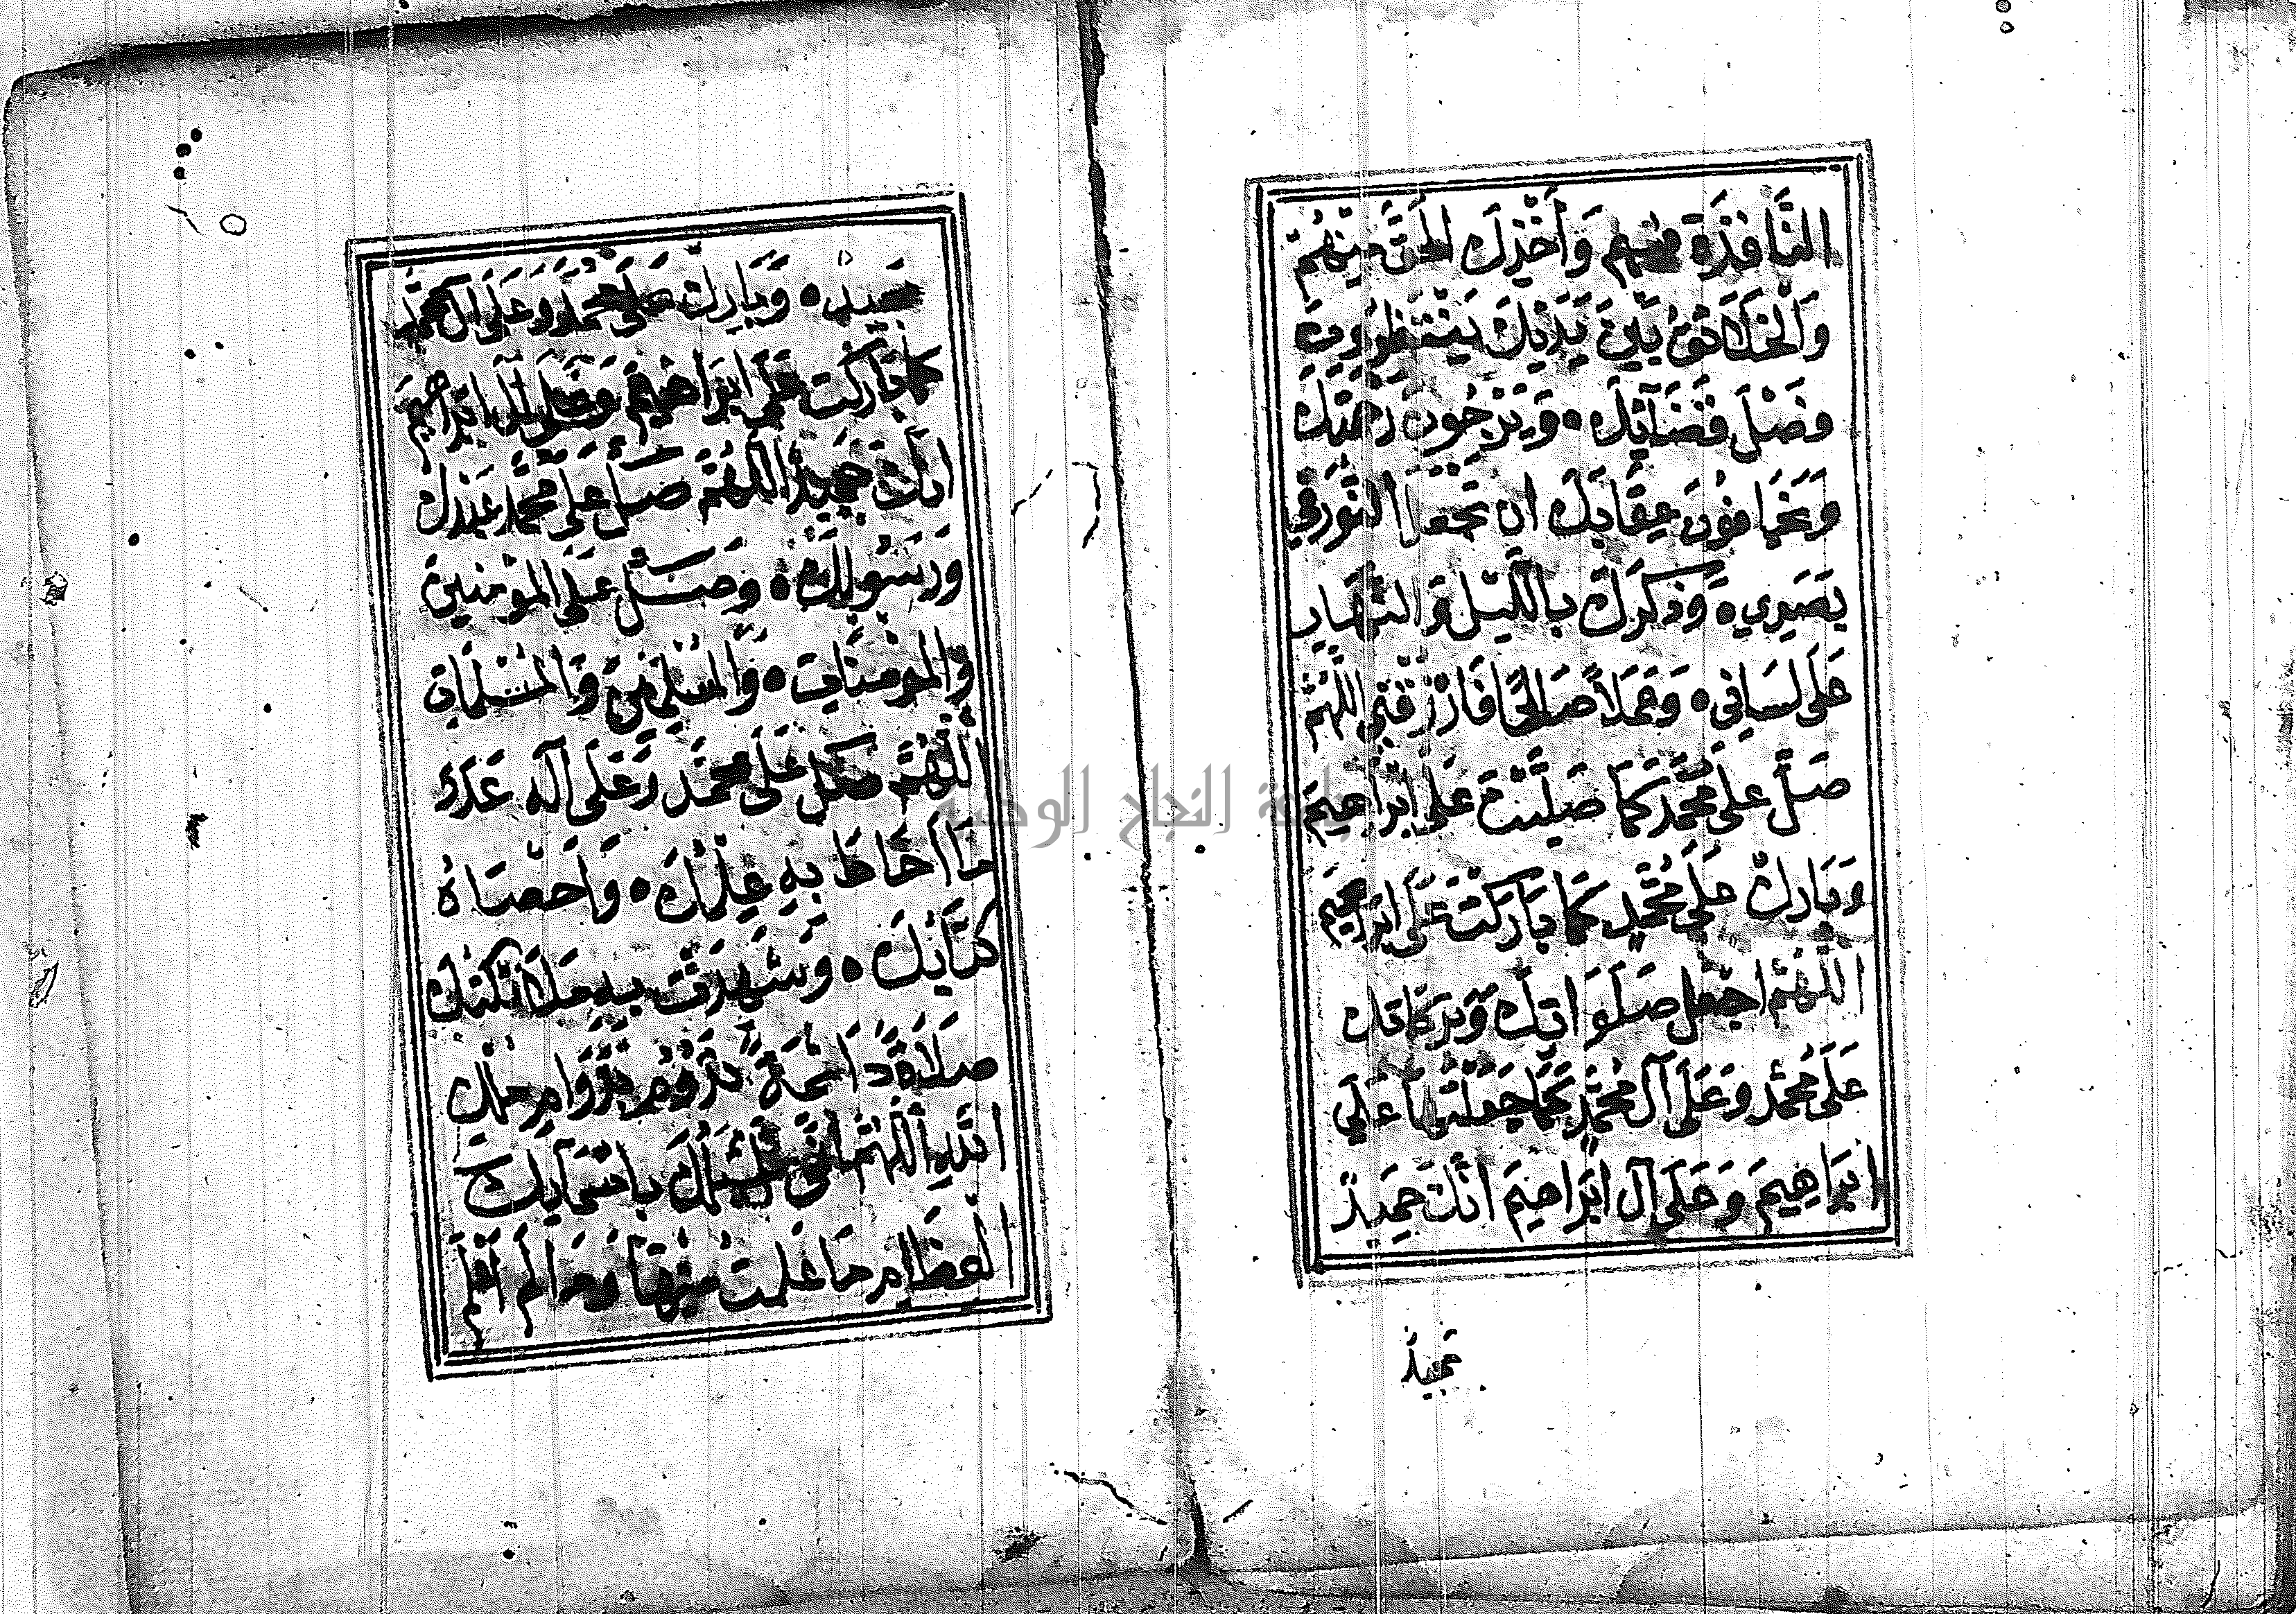 النَّافِذَةِ فِيهِم وَأَخْذِكَ الْحَقَّ مِنْهُمْ
وَالْخَلَائِقُ بَيْنَ يَدَيْكَ يَنْتَظِرُونَ
فَصْلَ قَضَآئِكَ ۰ وَيَرْجُونَ رَحْمَتَكَ
وَيَخَافُونَ عِقَابَكَ ان تَجْعَلَ النُّورَ فِي
بَصَرِي ۰ وَذِكْرَكَ بِاللَّيْلِ وَالنَّهَارِ
عَلَى لِسَانِي ۰ وَعَمَلاً صَالِحًا فَارْزُقْنِي اللَّهُمَّ
صَلِّ عَلَى مُحَمَّدٍ كَمَا صَلَّيْتَ عَلَى ابْرَاهِيمَ
وَبَارِكْ عَلَى مُحَمَّدٍ كَمَا بَارَكْتَ عَلَى ابْرَاهِيمَ
اللَّهُمَّ اجْعَلْ صَلَوَاتِكَ وَبَرَكَاتِكَ
عَلَى مُحَمَّدٍ وَعَلَى آلِ مُحَمَّدٍ كَمَا جَعَلْتَهَا عَلَى
ابْرَاهِيمَ وَعَلَى آلِ ابْرَاهِيمَ انَّكَ حَمِيدٌ
مَجِيدٌ
مَجِيدٌ ۰ وَبَارِكْ عَلَى مُحَمَّدٍ وَعَلَى آلِ مُحَمَّدٍ
كَمَا بَارَكْتَ عَلَى ابْرَاهِيمَ وَعَلَى آلِ ابْرَاهِيمَ
انَّكَ حَمِيدٌ اللَّهُمَّ صَلِّ عَلَى مُحَمَّدٍ عَبْدِكَ
وَرَسُولِكَ ۰ وَصَلِّ عَلَى الْمُؤْمِنِينَ
وَالْمُؤْمِنَاتِ ۰ وَالْمُسْلِمِينَ وَالْمُسْلِمَاتِ
اللَّهُمَّ صَلِّ عَلَى مُحَمَّدٍ وَعَلَى آلِهِ عَدَدَ
مَا احَاطَ بِهِ عِلْمُكَ ۰ وَأَحْصَاهُ
كِتَابُكَ ۰ وَشَهِدَتْ بِهِ مَلَائِكَتُكَ
صَلَاةً دَائِمَةً تَدُومُ بِدَوَامِ مُلْكِ
اللهِ اللَّهُمَّ انِّي أَسْأَلُكَ بِاسْمَآئِكَ
الْعِظَامِ مَا عَلِمْتُ مِنْهَا وَمَا لَمْ أَعْلَمْ
جامعة النجاح الوطنية